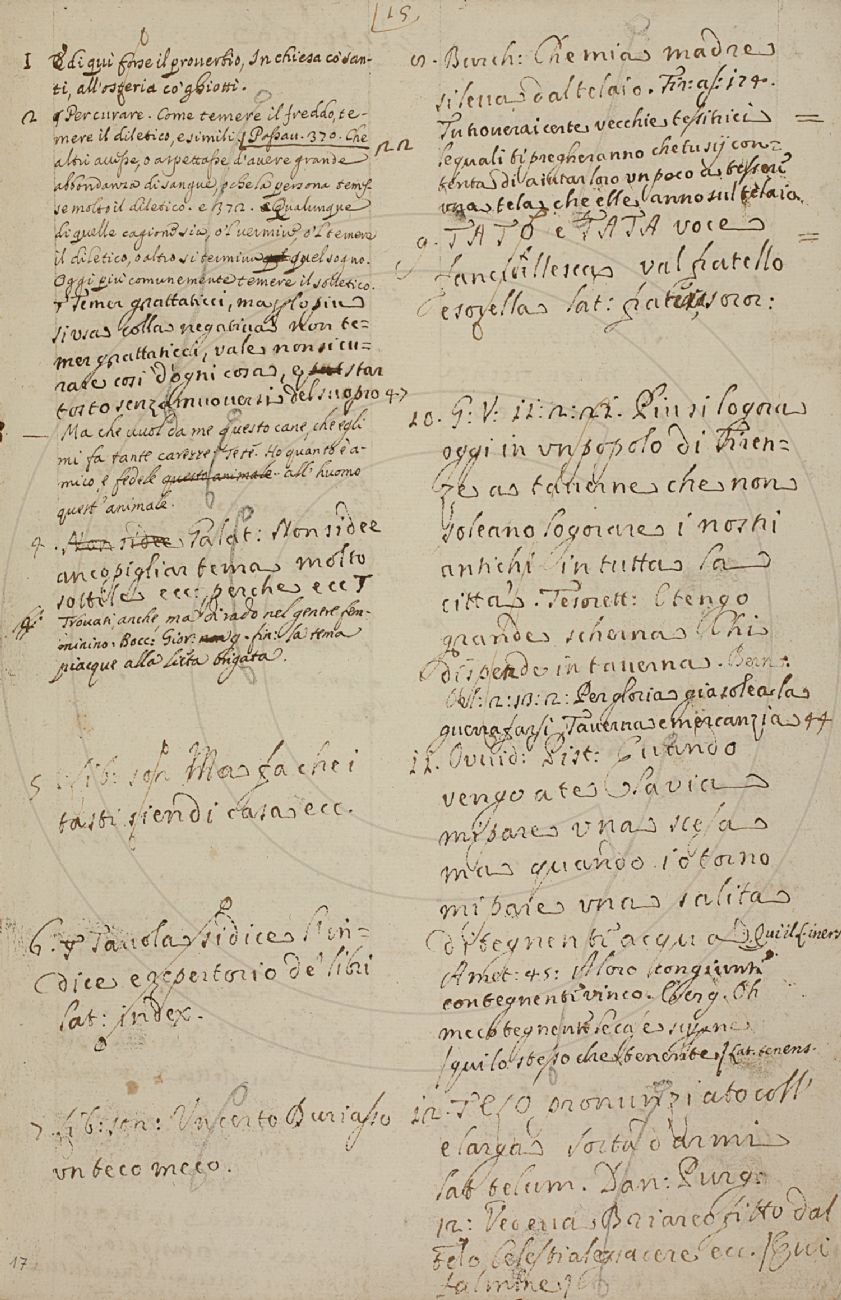 15
1 E di qui forse il proverbio, In chiesa co' san-
ti, all'osteria co' ghiotti.
2 Per curare. Come temere il freddo, te-
mere il diletico, e simili Passav. 370. Che
altri avisse, o aspettasse d'avere grande
abbondanza di sangue, o che la persona temes-
se molto il diletico. e 372. Qualunque
di quelle cagioni sia, o 'l vermine, o 'l temere
il diletico, o altro si termina quel sogno.
Oggi più comunemente temere il solletico.
Timer grattaticci, ma lo più
si usa colla negativa Non te=
mer grattaticci, vale non si cu-
rare così d'ogni cosa, e star
tosto senza muoversi del suo pro 47
Ma che vuol da me questo cane, che egli
mi fa tante carezze? Te te. Ho quanto è a-
mico, e fedele questo animale all'huomo
quest'animale.
4. Non si dee Galat: Non si dee
anco pigliar tema molto
sottile ecc: perche ecc
Trovati anche, ma di rado nel genere fem-
minino. Bocc: Gior: 9. fin: la tema
piacque alla lieta brigata.
5 Lib: son Ma fa che i
tasti siendi casa ecc.
6. Tavola si dice l'in=
dice e repertorio de' libri
lat: index.
7 Lib: son: Un certo Buriasso
un teco meco.
17
8. Burch: Che mia madre
si leva dal telaio. Fir: as: 174.
Tu troverai certe vecchie tessitrici =
le quali ti pregheranno che tu sij con=
tenta di aiutar loro un poco a tesser
una tela, che elle anno sul telaio
22
9. TATO e TATA voce =
fanciullesca val fratello
e sorella lat: frater, soror:
10. G: V: 11: 2: 21. Piu si logora
oggi in un popolo di Firen=
ze a taverne che non
soleano logorare i nostri
antichi in tutta la
città. Tesorett: E tengo
grande scherna Chi
dispende in taverna. Bern:
Orl: 2: 10: 2: Per gloria gia solea la
guerra farsi, Taverna e mercanzia 44
11. Ovvid: Pist: Quando
vengo a te la via
mi pare una scesa
ma quando io torno
mi pare una salita
di tegnenti acqua
Amet: 45: A loro congiunti
con tegnente vinco. Oh
meco tegnente seca e sugne
qui lo stesso che tenente Lat. tenens.
12. TELO pronunziato coll'
e larga sorta d'armi
lat telum. Dan: Purg:
12: Vedeva Briareo fitto dal
telo Celestiale giacere ecc. Qui
fulmine